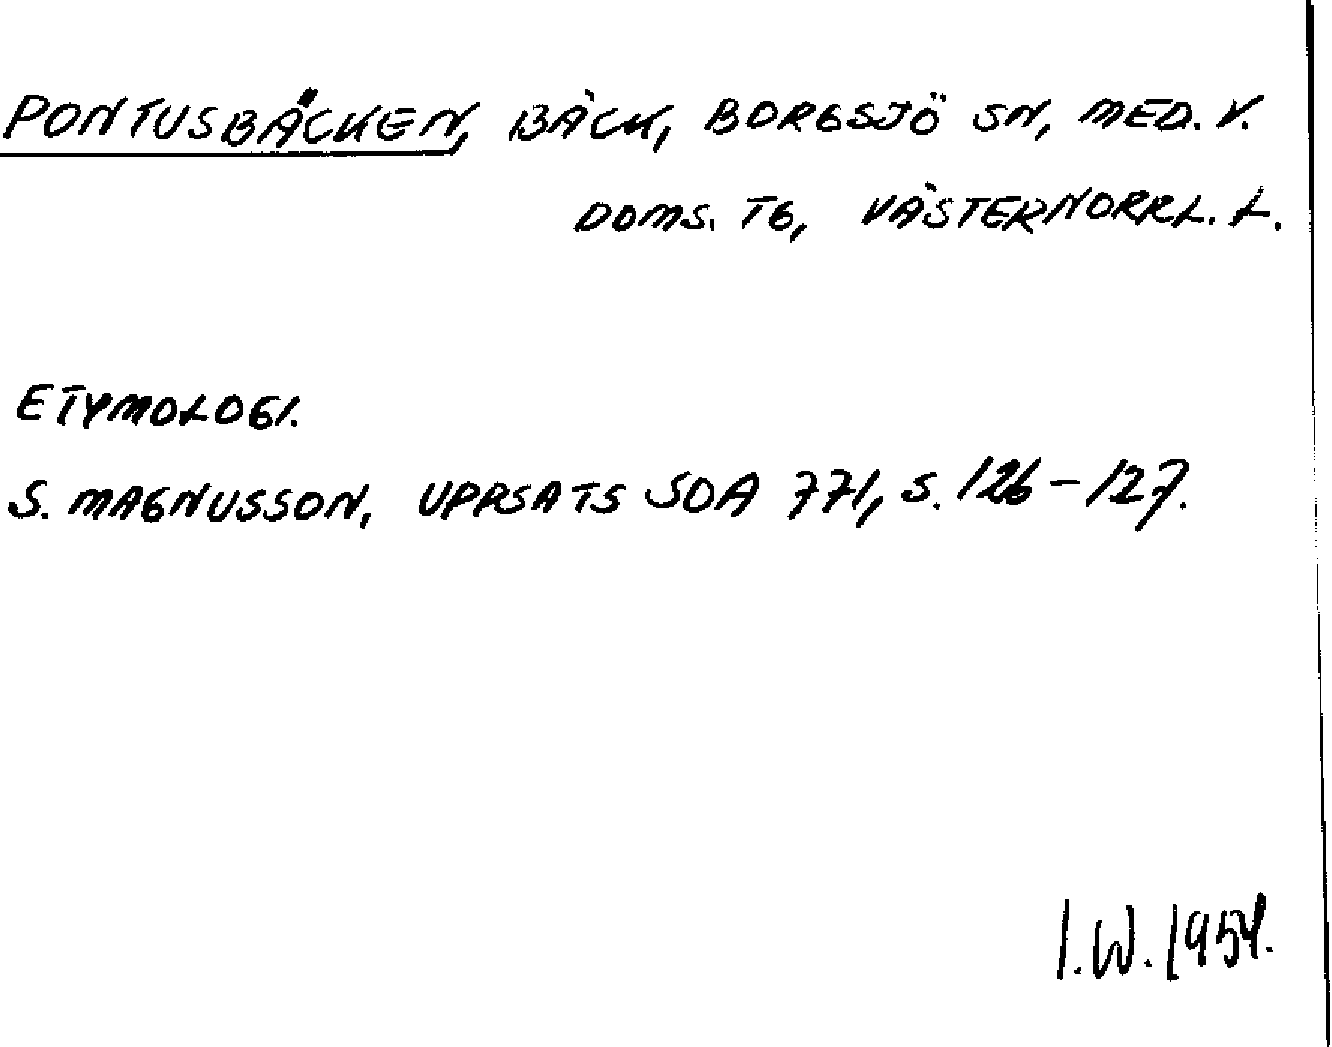 PONTUSBÄCKEN, BÄCK, BORGSJÖ SN, MED. V.
DOMS. TG, VÄSTERNORRL. L.
ETYMOLOGI.
S. MAGNUSSON, UPPSATS SOA 771, S. 126-127.
I.W. 1954.